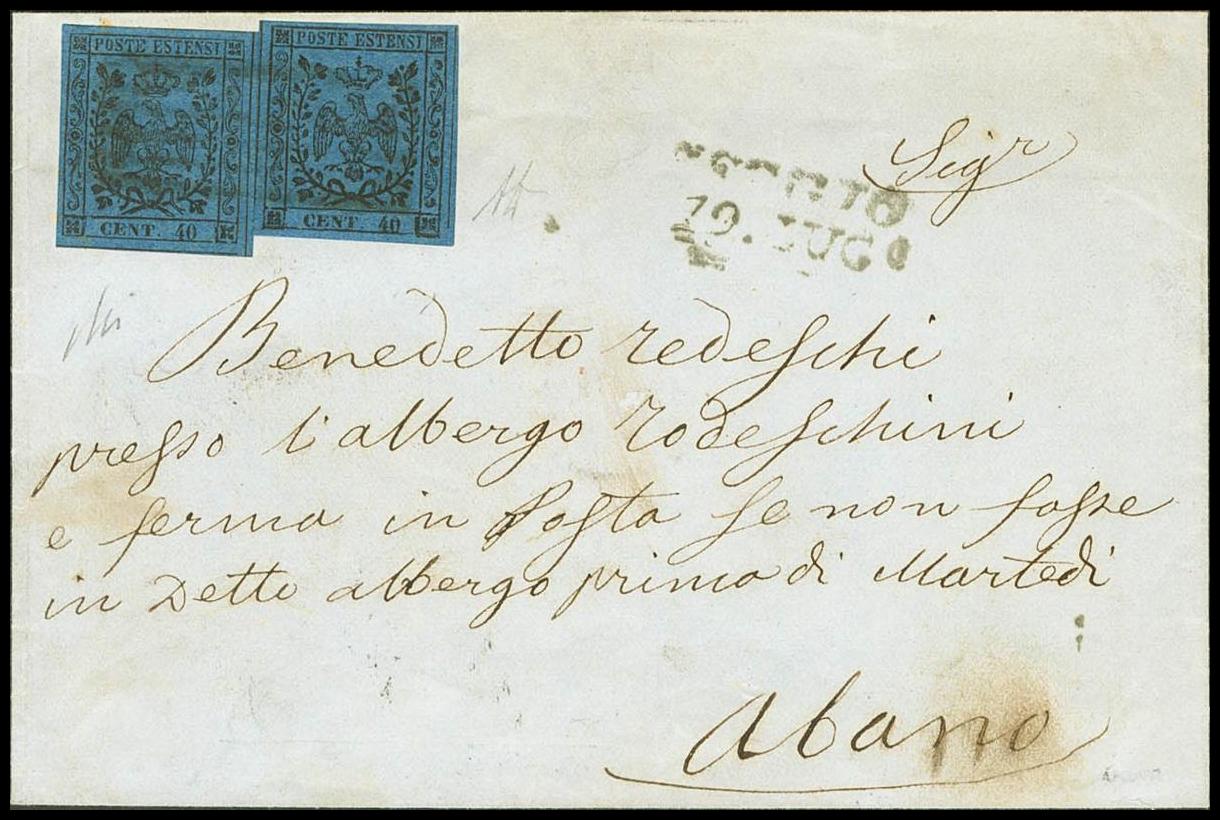 POSTE ESTENSI POSTE ESTENSI
CENT. 40 CENT. 40
Sigr
19. LUG
Benedetto Tedeschi
presso l'albergo Todeschini
e ferma in Posta se non fosse
in Detto albergo prima di Martedi
Abano